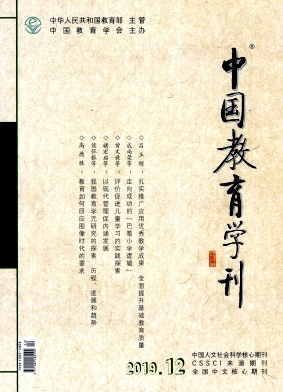 中华人民共和国教育部 主管
中国教育学会 主办
中国教育学刊
◇吕玉刚：扎实推广应用优秀教学成果 全面提升基础教育质量
走向成功的“巴蜀小学逻辑”
评价促进儿童学习的实践探索
以现代管理促内涵发展
我国教育学元研究的探索：历程、进展和趋势
◇高德胜：教育如何回应图像时代的要求
2019.12
中国人文社会科学核心期刊
CSSCI来源期刊
全国中文核心期刊